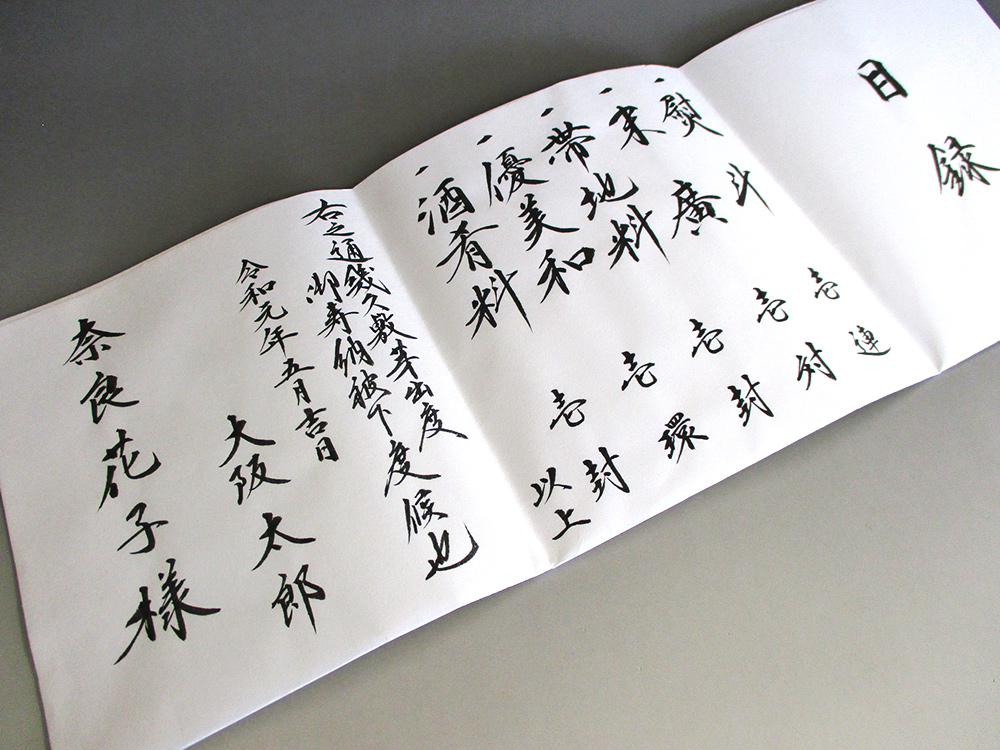 目録
一、熨斗 壱連
一、末廣 壱対
一、帯地料 壱封
一、優美和 壱環
一、酒肴料 壱封
以上
右之通幾久敷芽出度
御寿納被下度候也
令和元年五月吉日
大阪太郎
奈良花子様